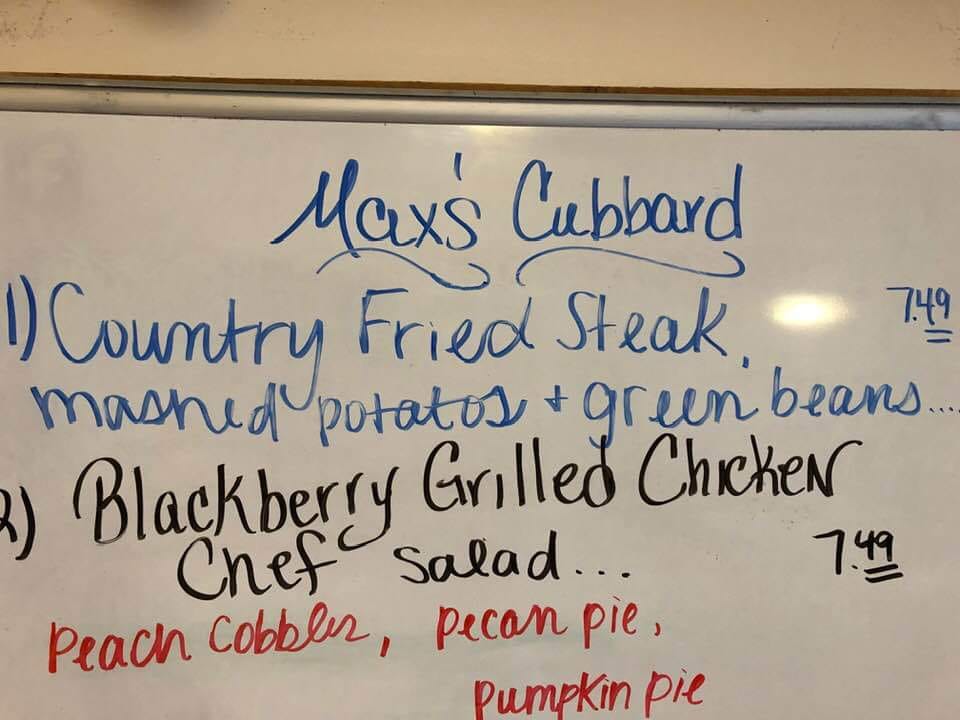 Max's Cubbard
1) Country Fried Steak, 7.49
mashed potatos + green beans....
2) Blackberry Grilled Chicken
Chef Salad... 7.49
Peach Cobbler, pecan pie,
pumpkin pie